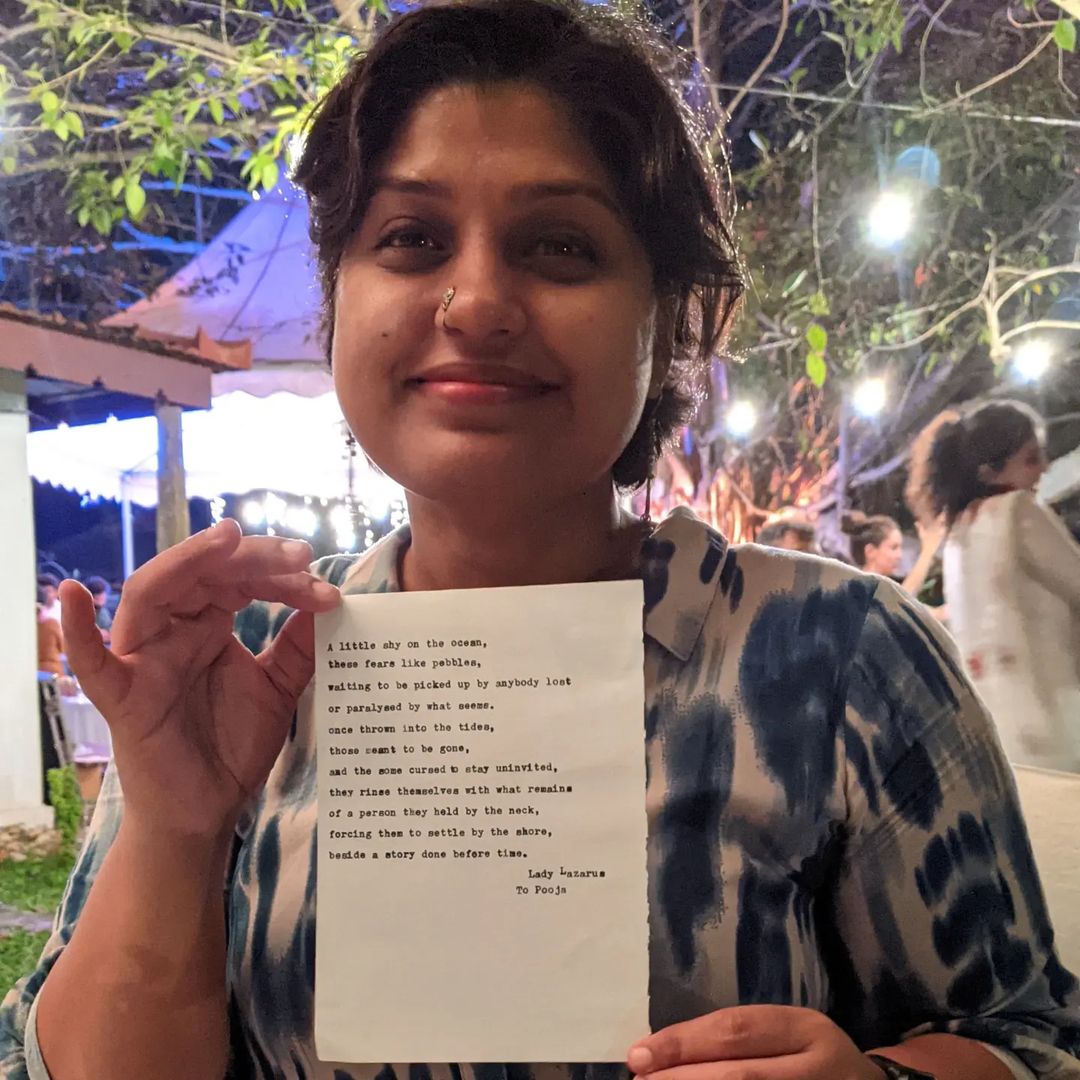 A little shy on the ocean,
these fears like pebbles,
waiting to be picked up by anybody lost
or paralysed by what seems.
once thrown into the tides,
those meant to be gone,
and the some cursed to stay uninvited,
they rinse themselves with what remains
of a person they held by the neck,
forcing them to settle by the shore,
beside a story done before time.
Lady Lazarus
To Pooja